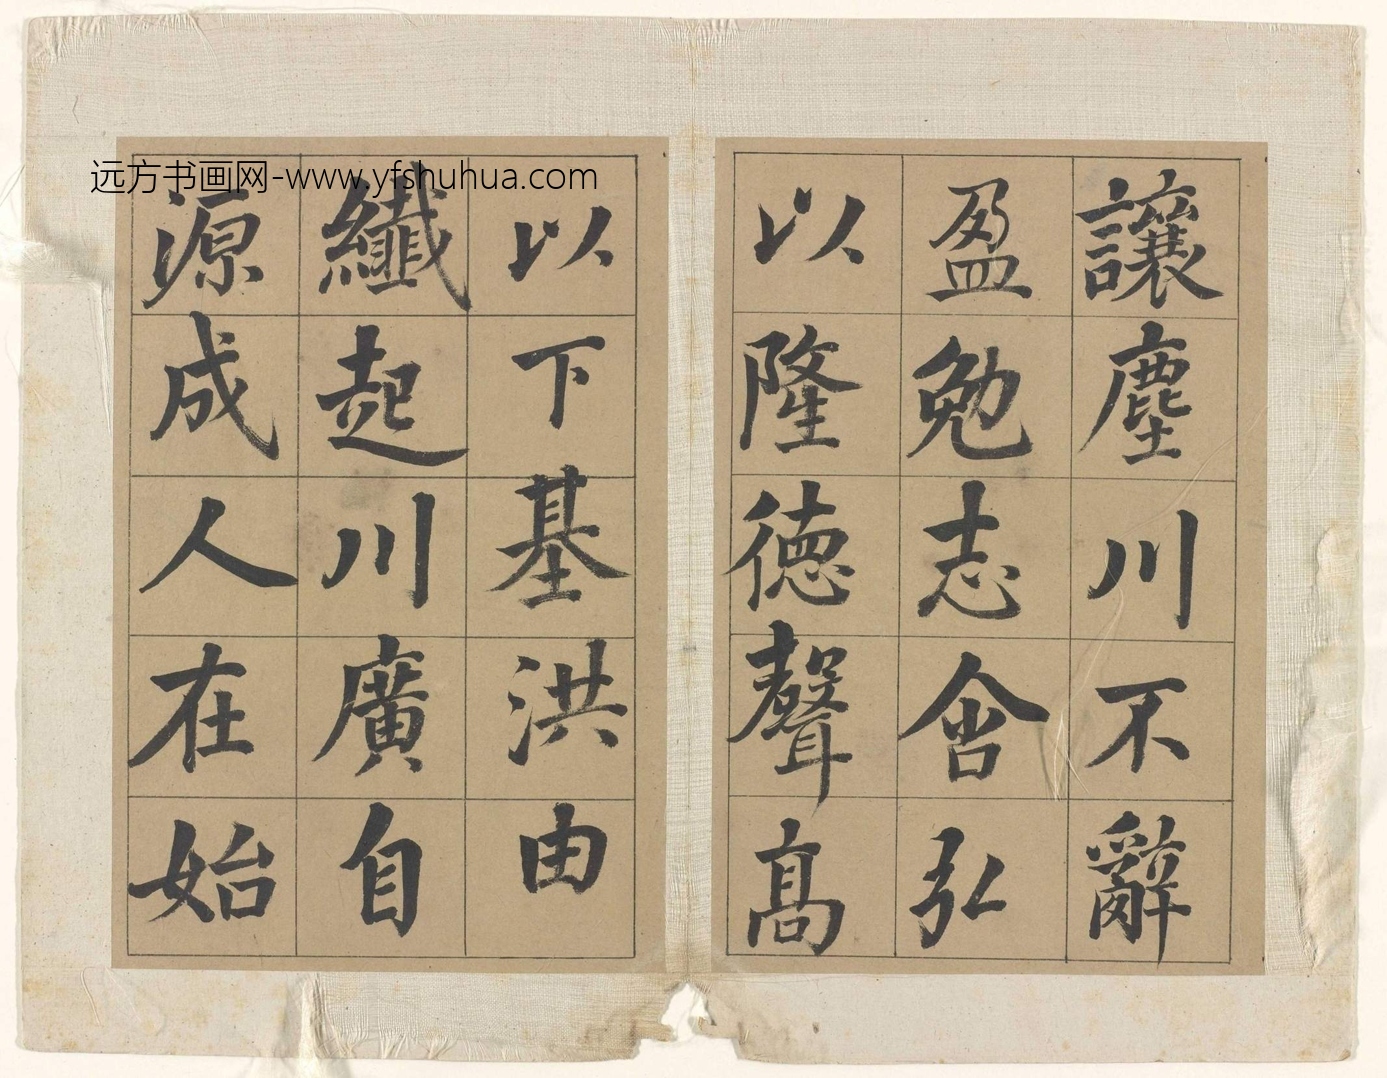 远方书画网-www.yfshuhua.com
讓塵川不辭
盈勉志含弘
以隆德聲高
以下基洪由
纖起川廣自
源成人在始